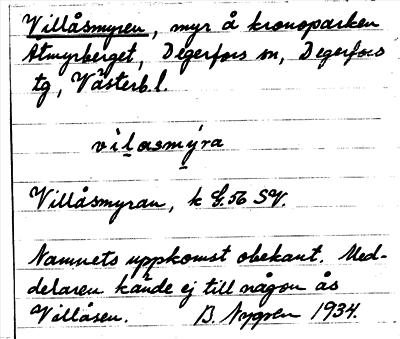 Villåsmyren, myr å kronoparken
Åtmyrberget, Degerfors sn, Degerfors
tg, Västerb. l.
vilasmýra
Villåsmyran, k G. 56 SV.
Namnets uppkomst obekant. Med-
delaren kände ej till någon ås
Villåsen. B. Nygren 1934.